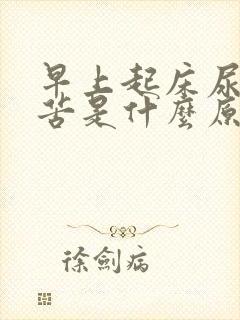 早上起床尿
苦是什麼原
徐劍病